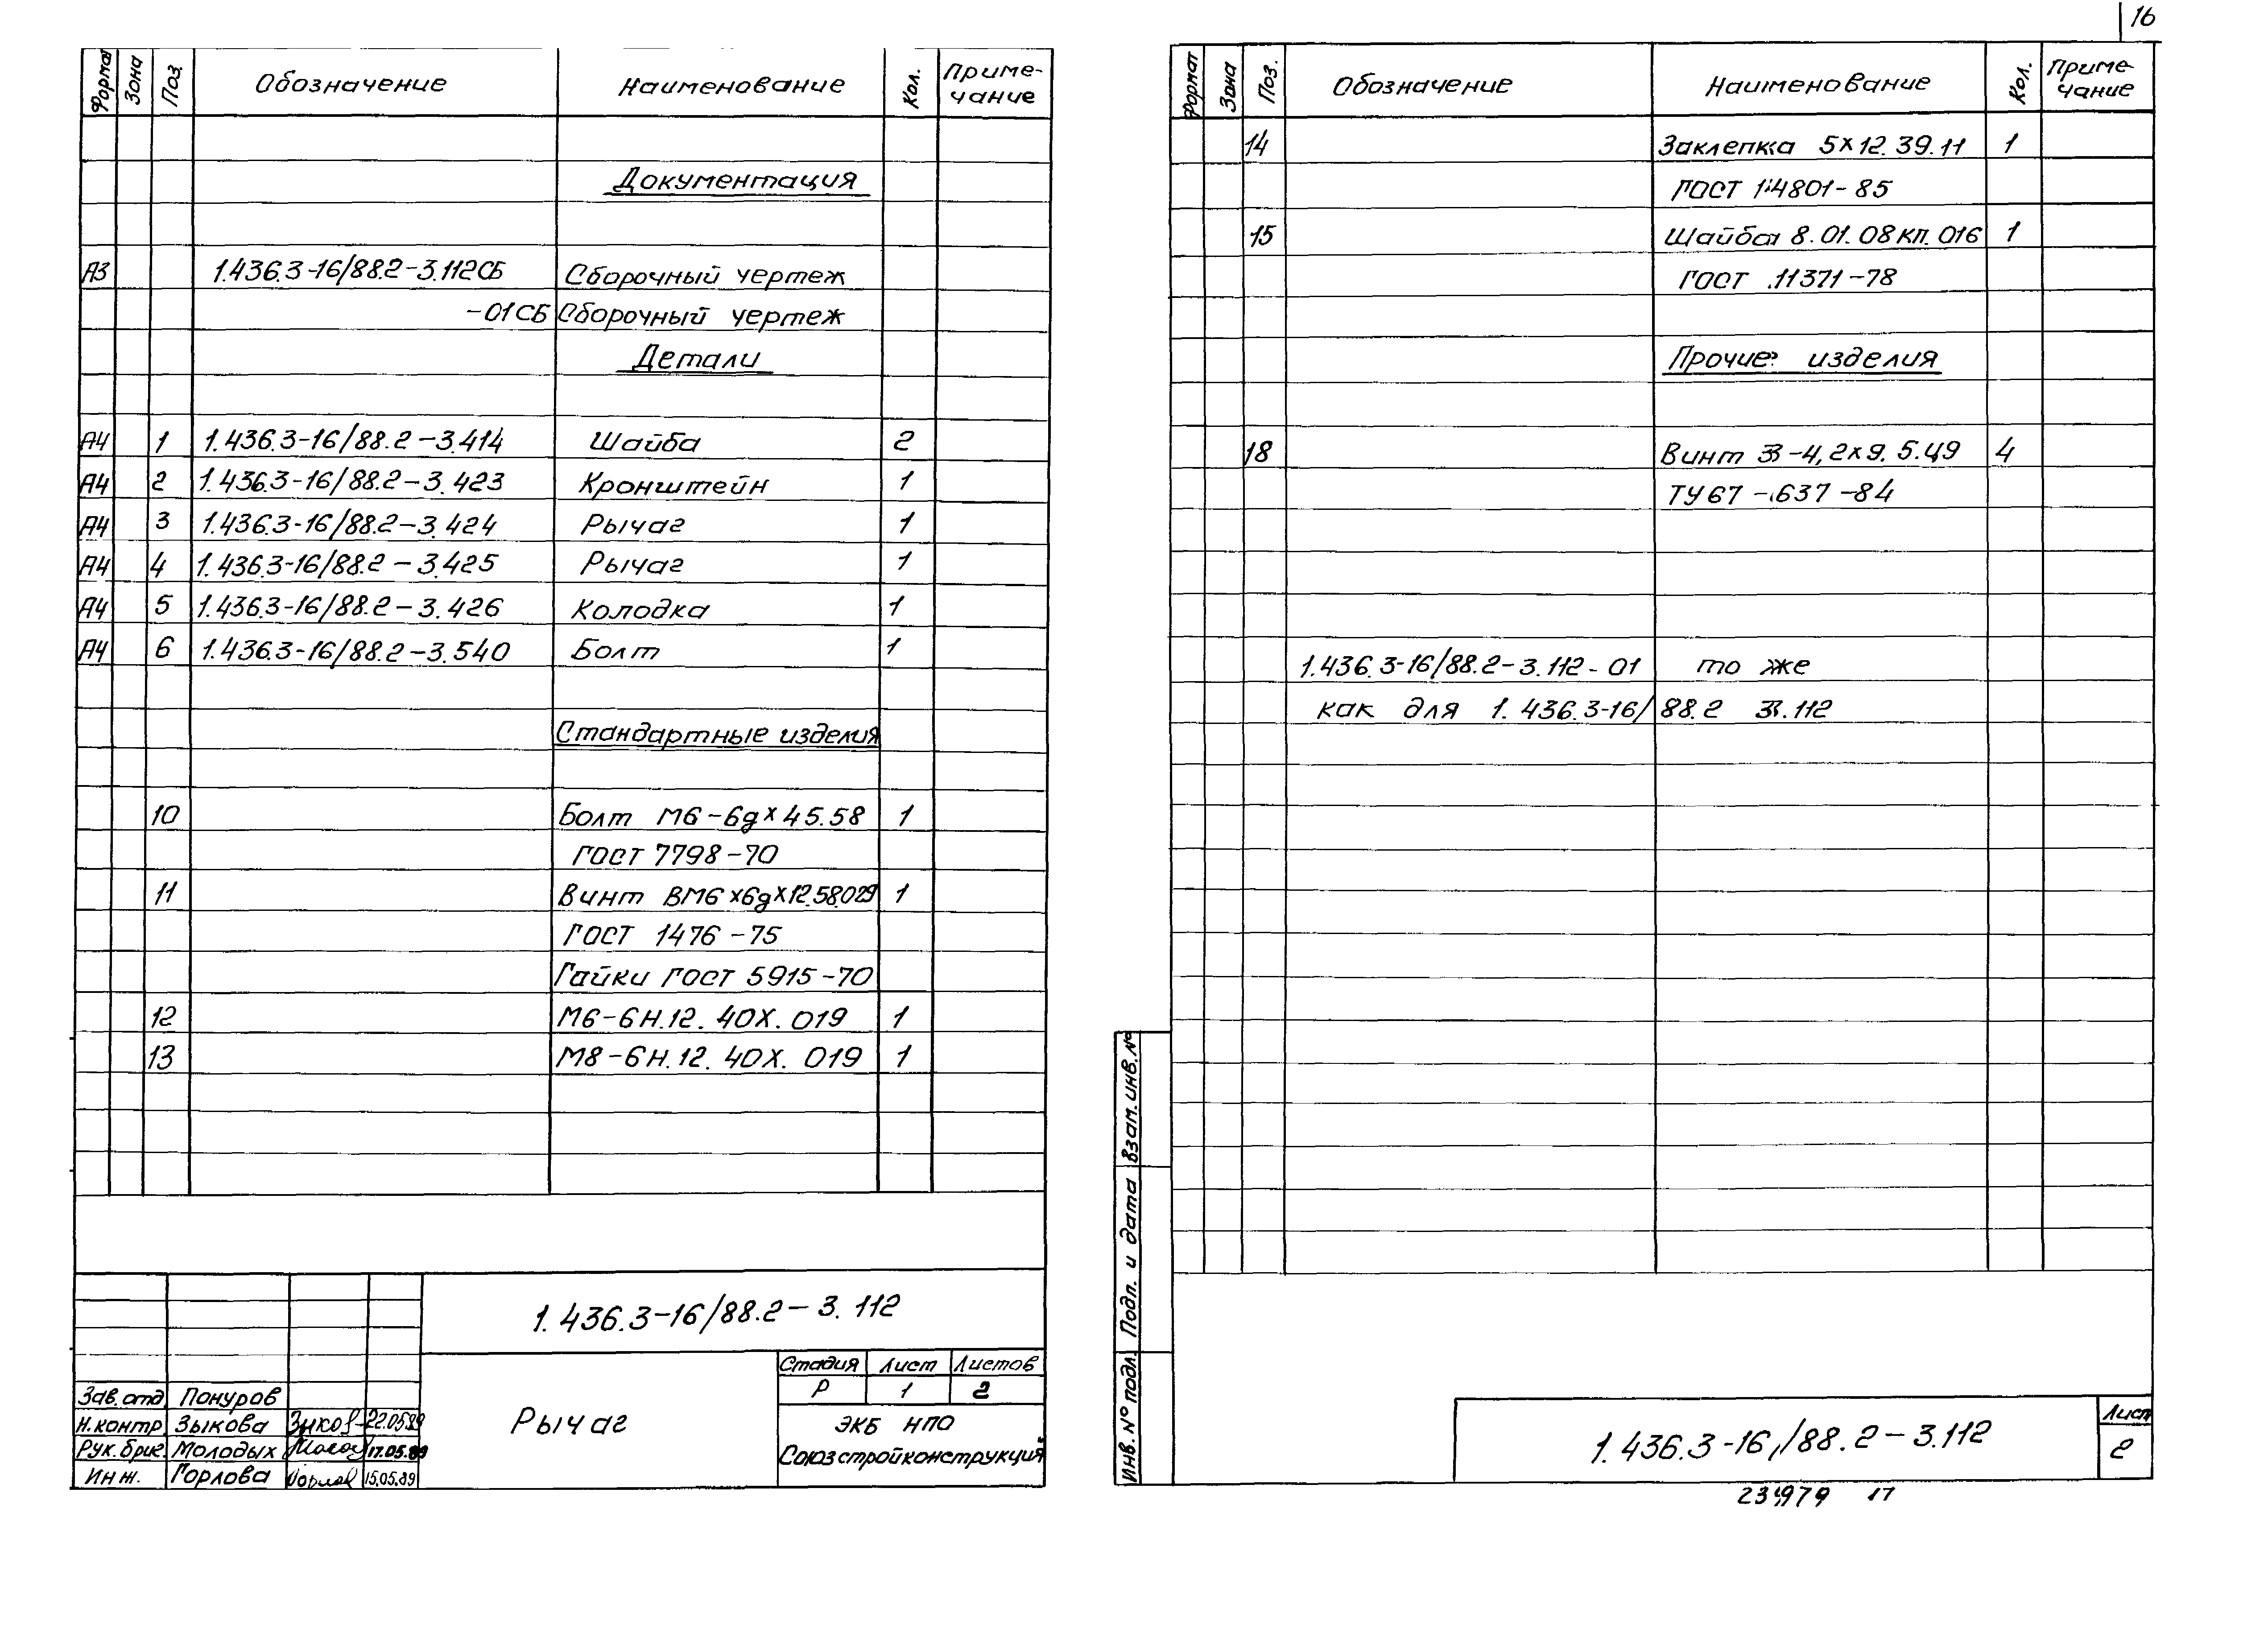 16
Формат Зона Поз. Обозначение Наименование Кол. Приме-
чание
Документация
А3 1.436.3-16/88.2-3.112СБ Сборочный чертеж
-01СБ Сборочный чертеж
Детали
А4 1 1.436.3-16/88.2-3.414 Шайба 2
А4 2 1.436.3-16/88.2-3.423 Кронштейн 1
А4 3 1.436.3-16/88.2-3.424 Рычаг 1
А4 4 1.436.3-16/88.2-3.425 Рычаг 1
А4 5 1.436.3-16/88.2-3.426 Колодка 1
А4 6 1.436.3-16/88.2-3.540 Болт 1
Стандартные изделия
10 Болт М6-6gх45.58 1
ГОСТ 7798-70
11 Винт ВМ6х6gх12.58.029 1
ГОСТ 1476-75
Гайки ГОСТ 5915-70
12 М6-6Н.12.40Х.019 1
13 М8-6Н.12.40Х.019 1
1.436.3-16/88.2-3.112
Стадия Лист Листов
Р 1 2
Рычаг
ЭКБ НПО
Союзстройконструкция
Зав.отд. Понуров
Н.контр. Зыкова Зыков 22.05.89
Рук.бриг. Молодых 17.05.89
Инж. Горлова 15.05.89
Формат Зона Поз. Обозначение Наименование Кол. Приме-
чание
14 Заклепка 5х12.39.11 1
ГОСТ 14801-85
15 Шайба 8.01.08кп.016 1
ГОСТ 11371-78
Прочие изделия
18 Винт В-4,2х9.5.Ц9 4
ТУ67-637-84
1.436.3-16/88.2-3.112-01 то же
как для 1.436.3-16/88.2 3.112
Взам.инв.№
Подп. и дата
Инв.№ подл.
1.436.3-16/88.2-3.112
Лист
2
23979 17